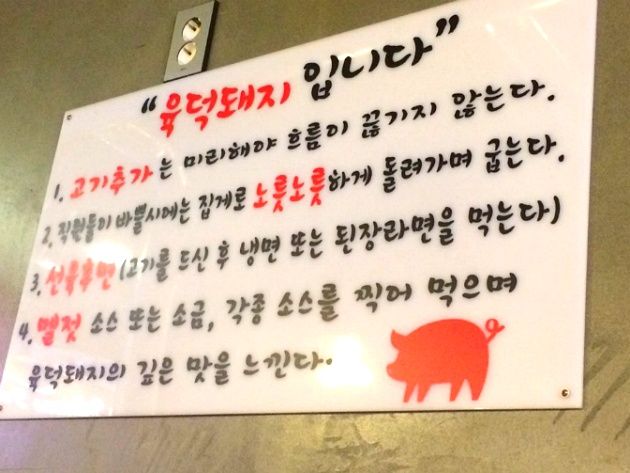 “육덕돼지 입니다”
1. 고기추가는 미리해야 흐름이 끊기지 않는다.
2. 직원들이 바쁠시에는 집게로 노릇노릇하게 돌려가며 굽는다.
3. 선육후면 (고기를 드신 후 냉면 또는 된장라면을 먹는다)
4. 멜젓 소스 또는 소금, 각종 소스를 찍어 먹으며
육덕돼지의 깊은 맛을 느낀다.